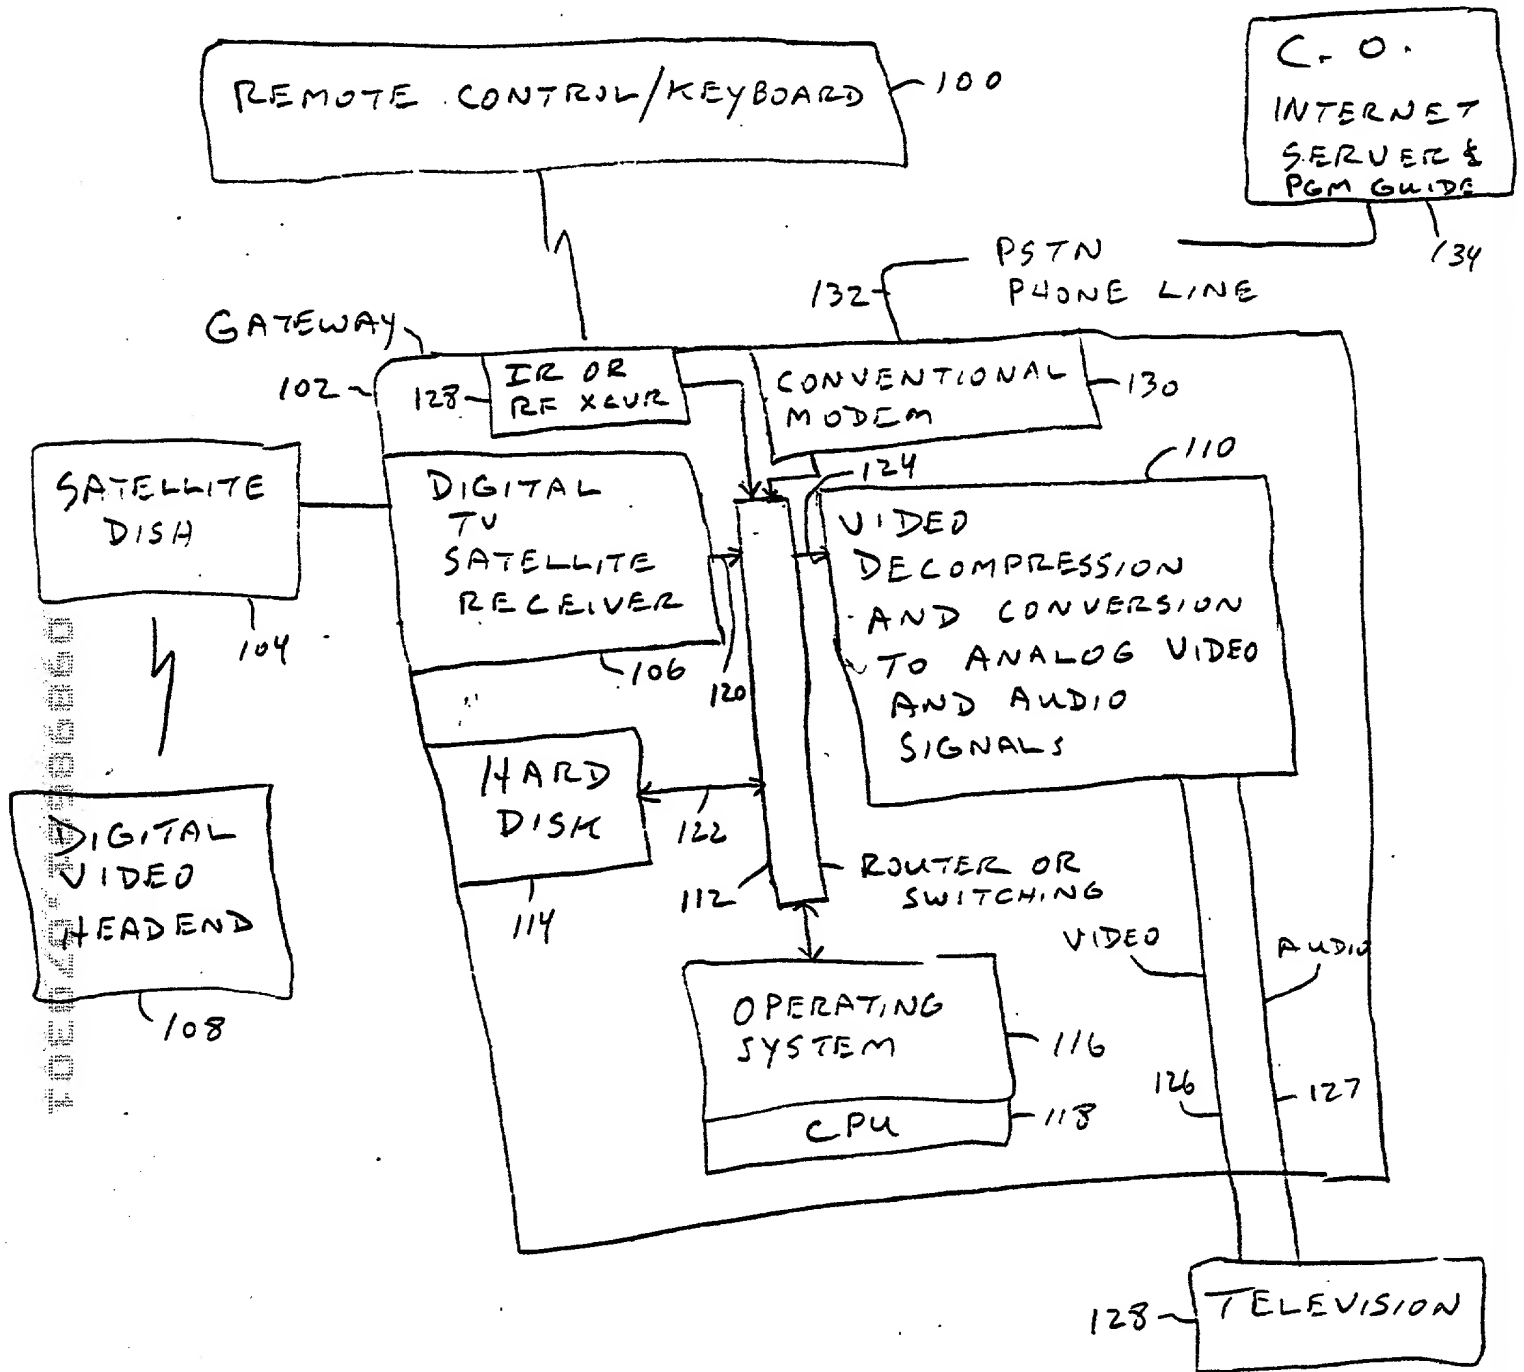 REMOTE CONTROL/KEYBOARD
100
C. O.
INTERNET
SERVER &
PGM GUIDE
134
PSTN
PHONE LINE
132
GATEWAY
102
128
IR OR
RF XCVR
CONVENTIONAL
MODEM
130
SATELLITE
DISH
104
DIGITAL
TV
SATELLITE
RECEIVER
106
120
124
110
VIDEO
DECOMPRESSION
AND CONVERSION
TO ANALOG VIDEO
AND AUDIO
SIGNALS
HARD
DISK
114
122
112
ROUTER OR
SWITCHING
DIGITAL
VIDEO
HEADEND
108
VIDEO
AUDIO
OPERATING
SYSTEM
116
CPU
118
126
127
128
TELEVISION